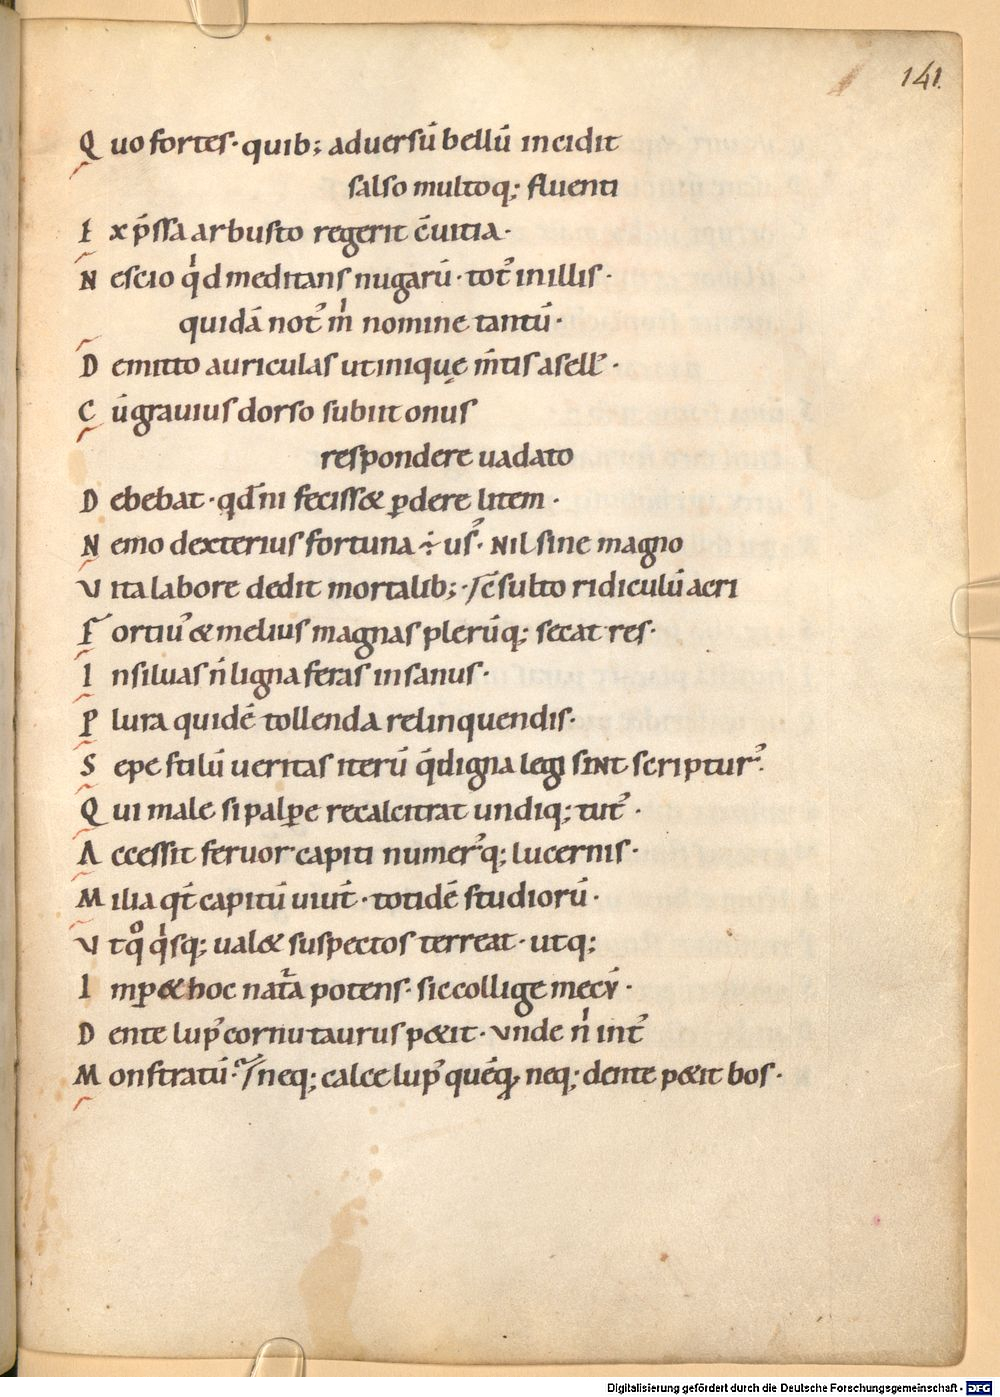 141.
Quo fortes· quib; aduersū bellū incidit
salso multoq; fluenti
Exp̄ssa arbusto regerit c̄uitia·
Nescio qͥd meditans nugarū· totꝰ inillis·
quidā notꝰ mͥ nomine tantū·
Demitto auriculas utiniquę m̄tis asellꝰ·
Cū grauius dorso subiit onus
respondere uadato
Debebat· qd̄ ni feciss& ꝑdere litem·
Nemo dexterius fortuna ÷ usꝰ· Nil sine magno
Vita labore dedit mortalib;· c̄sulto ridiculū acri
Fortiuꝰ & melius magnas plerūq; secat res·
In siluas n̄ ligna feras insanus·
Plura quidē tollenda relinquendis·
Sepe stilū ueritas iterū q̄ digna legi sint scripturꝰ·
Qui male si palꝑe recalcitrat undiq; tutꝰ·
Accessit feruor capiti numerꝰq; lucernis·
Milia qt̄ capitū uiuт̄· totidē studiorū·
Vtqͦ qͥsq; ual& suspectos terreat· utq;
Imꝑ& hoc natͬa potens· sic collige mecū·
Dente lupꝰ cornu taurus p&it· Vnde nͥ intꝰ
Monstratū· neq; calce lupꝰ quēq; neq; dente p&it bos·
Digitalisierung gefördert durch die Deutsche Forschungsgemeinschaft - DFG